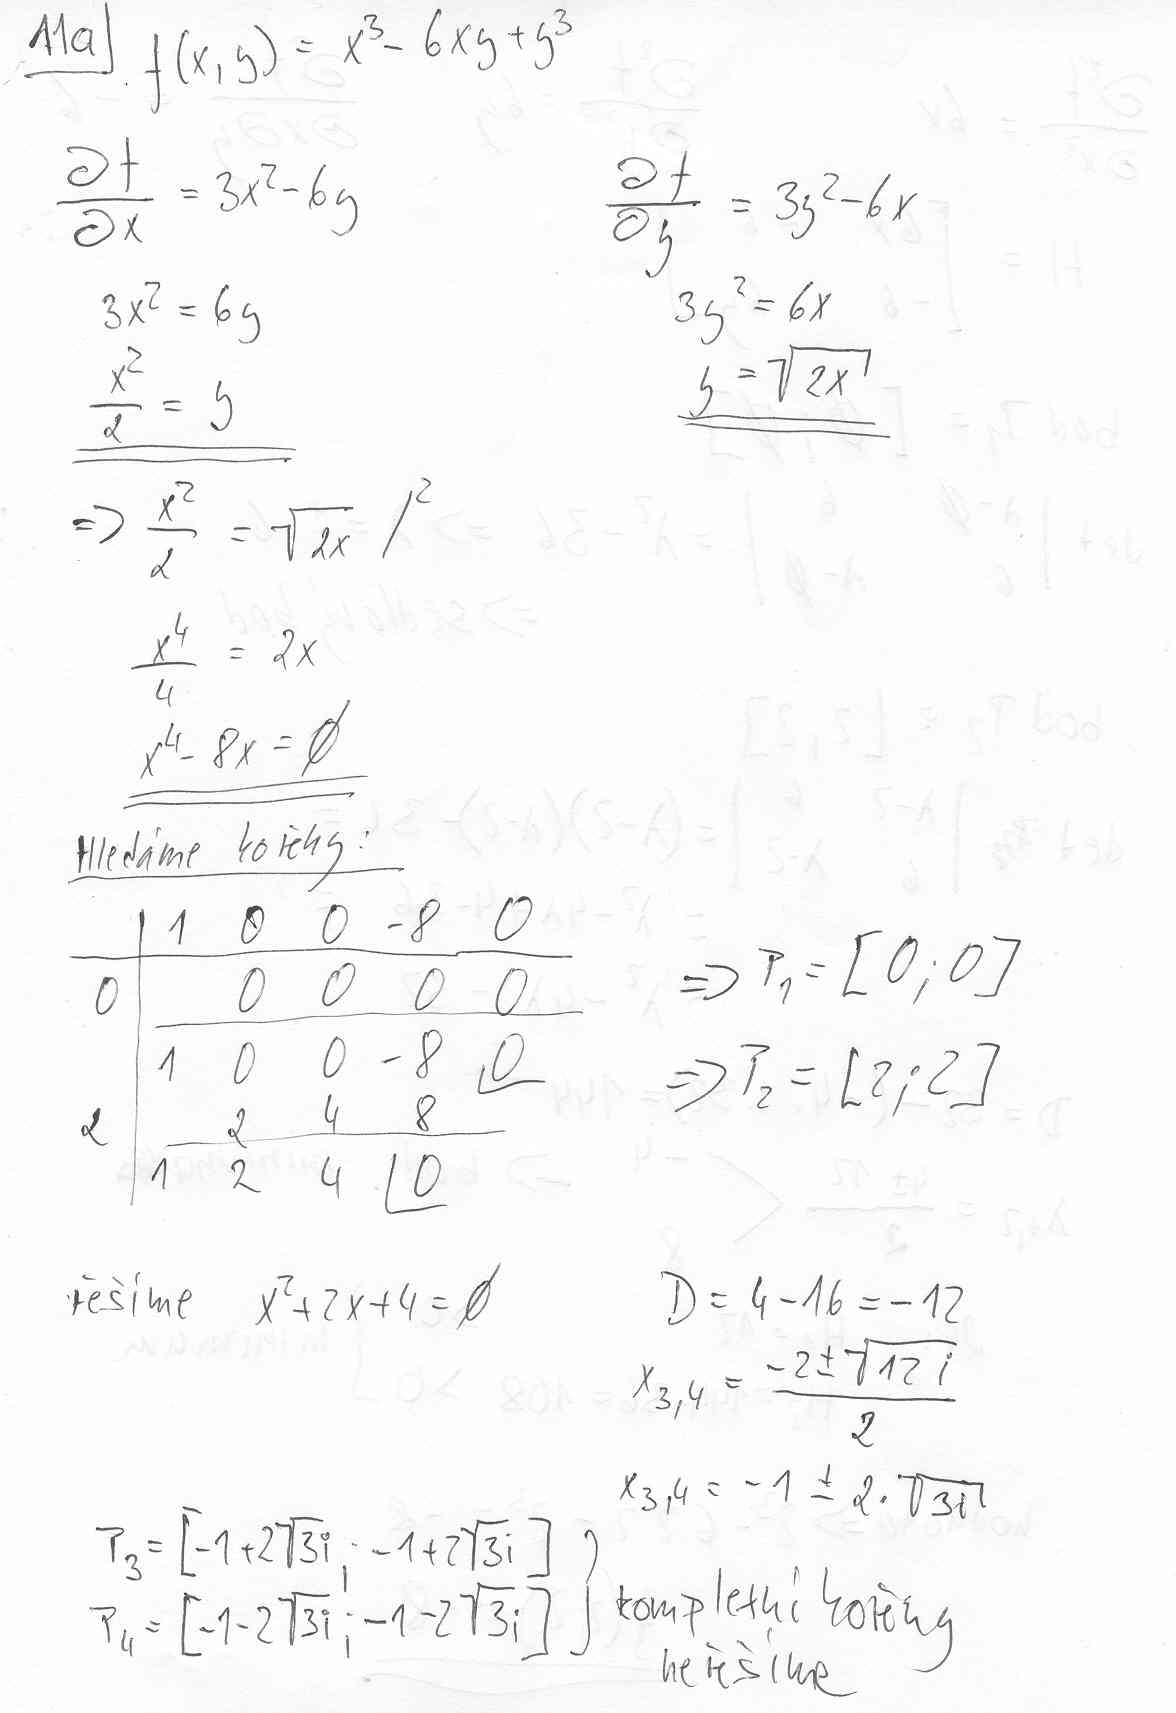 11a) f(x,y) = x³ - 6xy + y³
∂f/∂x = 3x² - 6y
∂f/∂y = 3y² - 6x
3x² = 6y
3y² = 6x
x²/2 = y
y = √2x
=> x²/2 = √2x /²
x⁴/4 = 2x
x⁴ - 8x = ∅
Hledáme kořeny:
1 0 0 -8 0
0 0 0 0 0
1 0 0 -8 0
2 2 4 8
1 2 4 0
=> P₁ = [0;0]
=> P₂ = [2;2]
řešíme x² + 2x + 4 = ∅
D = 4 - 16 = -12
x₃,₄ = (-2 ± √12 i)/2
x₃,₄ = -1 ± 2·√3i
P₃ = [-1+2√3i ; -1+2√3i]
P₄ = [-1-2√3i ; -1-2√3i]
kompletní kořeny
neřešíme